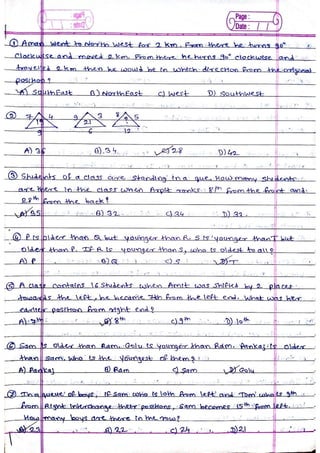 Page:
Date:
① Aman went to North West for 2 km. From there he turns 90°
clockwise and moved 2 km. From there he turns 90° clockwise and
travelled 2 km then he would be in which direction from the original
position?
A) South East B) North East C) West D) South west
② 7 4 9 3 3 5
19 21 1
9 6 12
A) 36 B) 34 C) 28 D) 42
③ Students of a class are standing in a que, How many students
are there in the class when Arpit ranks 8th from the front and
28th from the back?
A) 35 B) 32 C) 34 D) 31
④ P is older than Q but younger than R. S is younger than T but
older than P. If R is younger than S, who is oldest to all?
A) P B) Q C) S D) T
⑤ A class contains 16 students when Amit was shifted by 2 places
towards the left, he become 7th from the left end. What was her
earlier position from right end?
A) 7th B) 8th C) 9th D) 10th
⑥ Sam is older than Ram. Golu is younger than Ram. Pankaj is older
than Sam. Who is the youngest of them?
A) Pankaj B) Ram C) Sam D) Golu
⑦ In a queue of boys, if Sam who is 10th from left and Tom who is 9th
from Right Interchange their positions, Sam becomes 15th from left.
How many boys are there in the row?
A) 23 B) 22 C) 24 D) 21